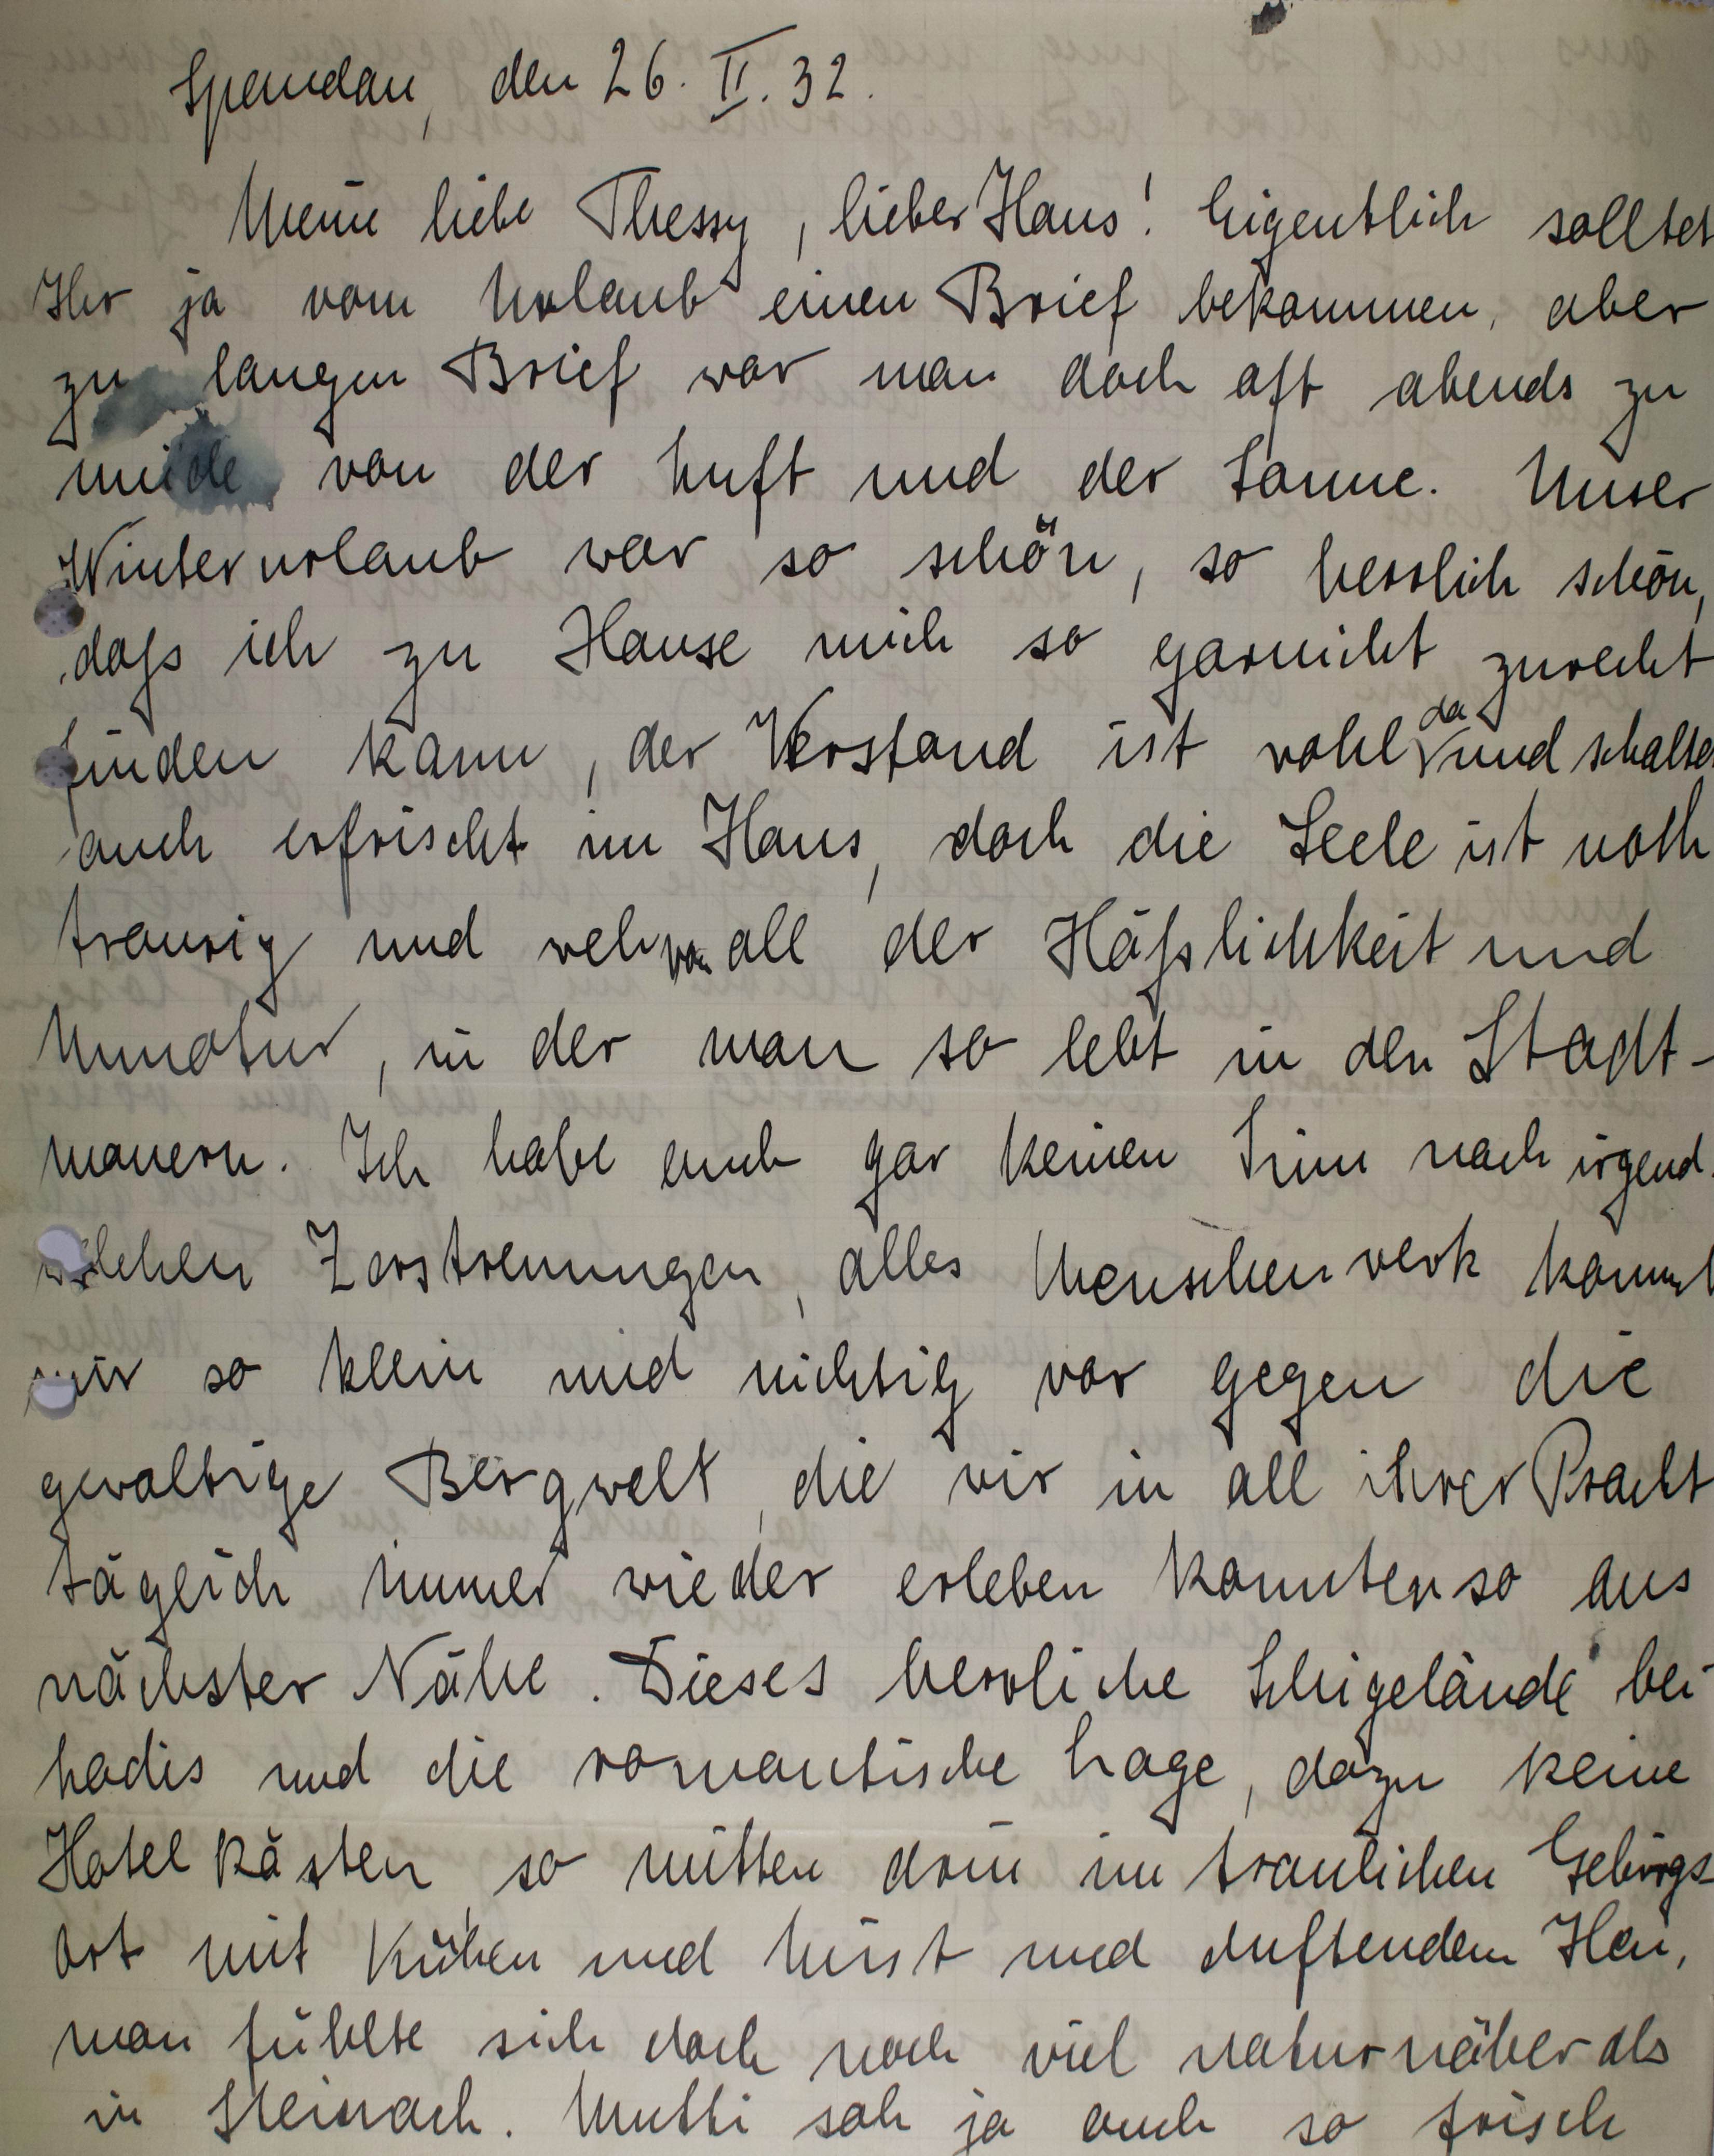 Spandau, den 26. II. 32.
Meine liebe Thessy, lieber Hans! Eigentlich solltet
Ihr ja vom Urlaub einen Brief bekommen, aber
zu langen Brief war man doch oft abends zu
müde von der Luft und der Sonne. Unser
Winterurlaub war so schön, so herrlich schön,
daß ich zu Hause mich so garnicht zurecht
finden kann, der Verstand ist wohl da und schaltet
auch erfrischt im Haus, doch die Seele ist noch
traurig und weh von all der Häßlichkeit und
Unnatur, in der man so lebt in den Stadt-
mauern. Ich habe auch gar keinen Sinn nach irgend-
welchen Zerstreuungen, alles Menschenwerk kommt
mir so klein und nichtig vor gegen die
gewaltige Bergwelt, die wir in all ihrer Pracht
täglich immer wieder erleben konnten so aus
nächster Nähe. Dieses herrliche Schigelände bei
Ladis und die romantische Lage, dazu keine
Hotelkästen, so mitten drin im traulichen Gebirgs-
ort mit Kühen und Mist und duftendem Heu,
man fühlte sich doch noch viel naturnäher als
in Steinach. Mutti sah ja auch so frisch